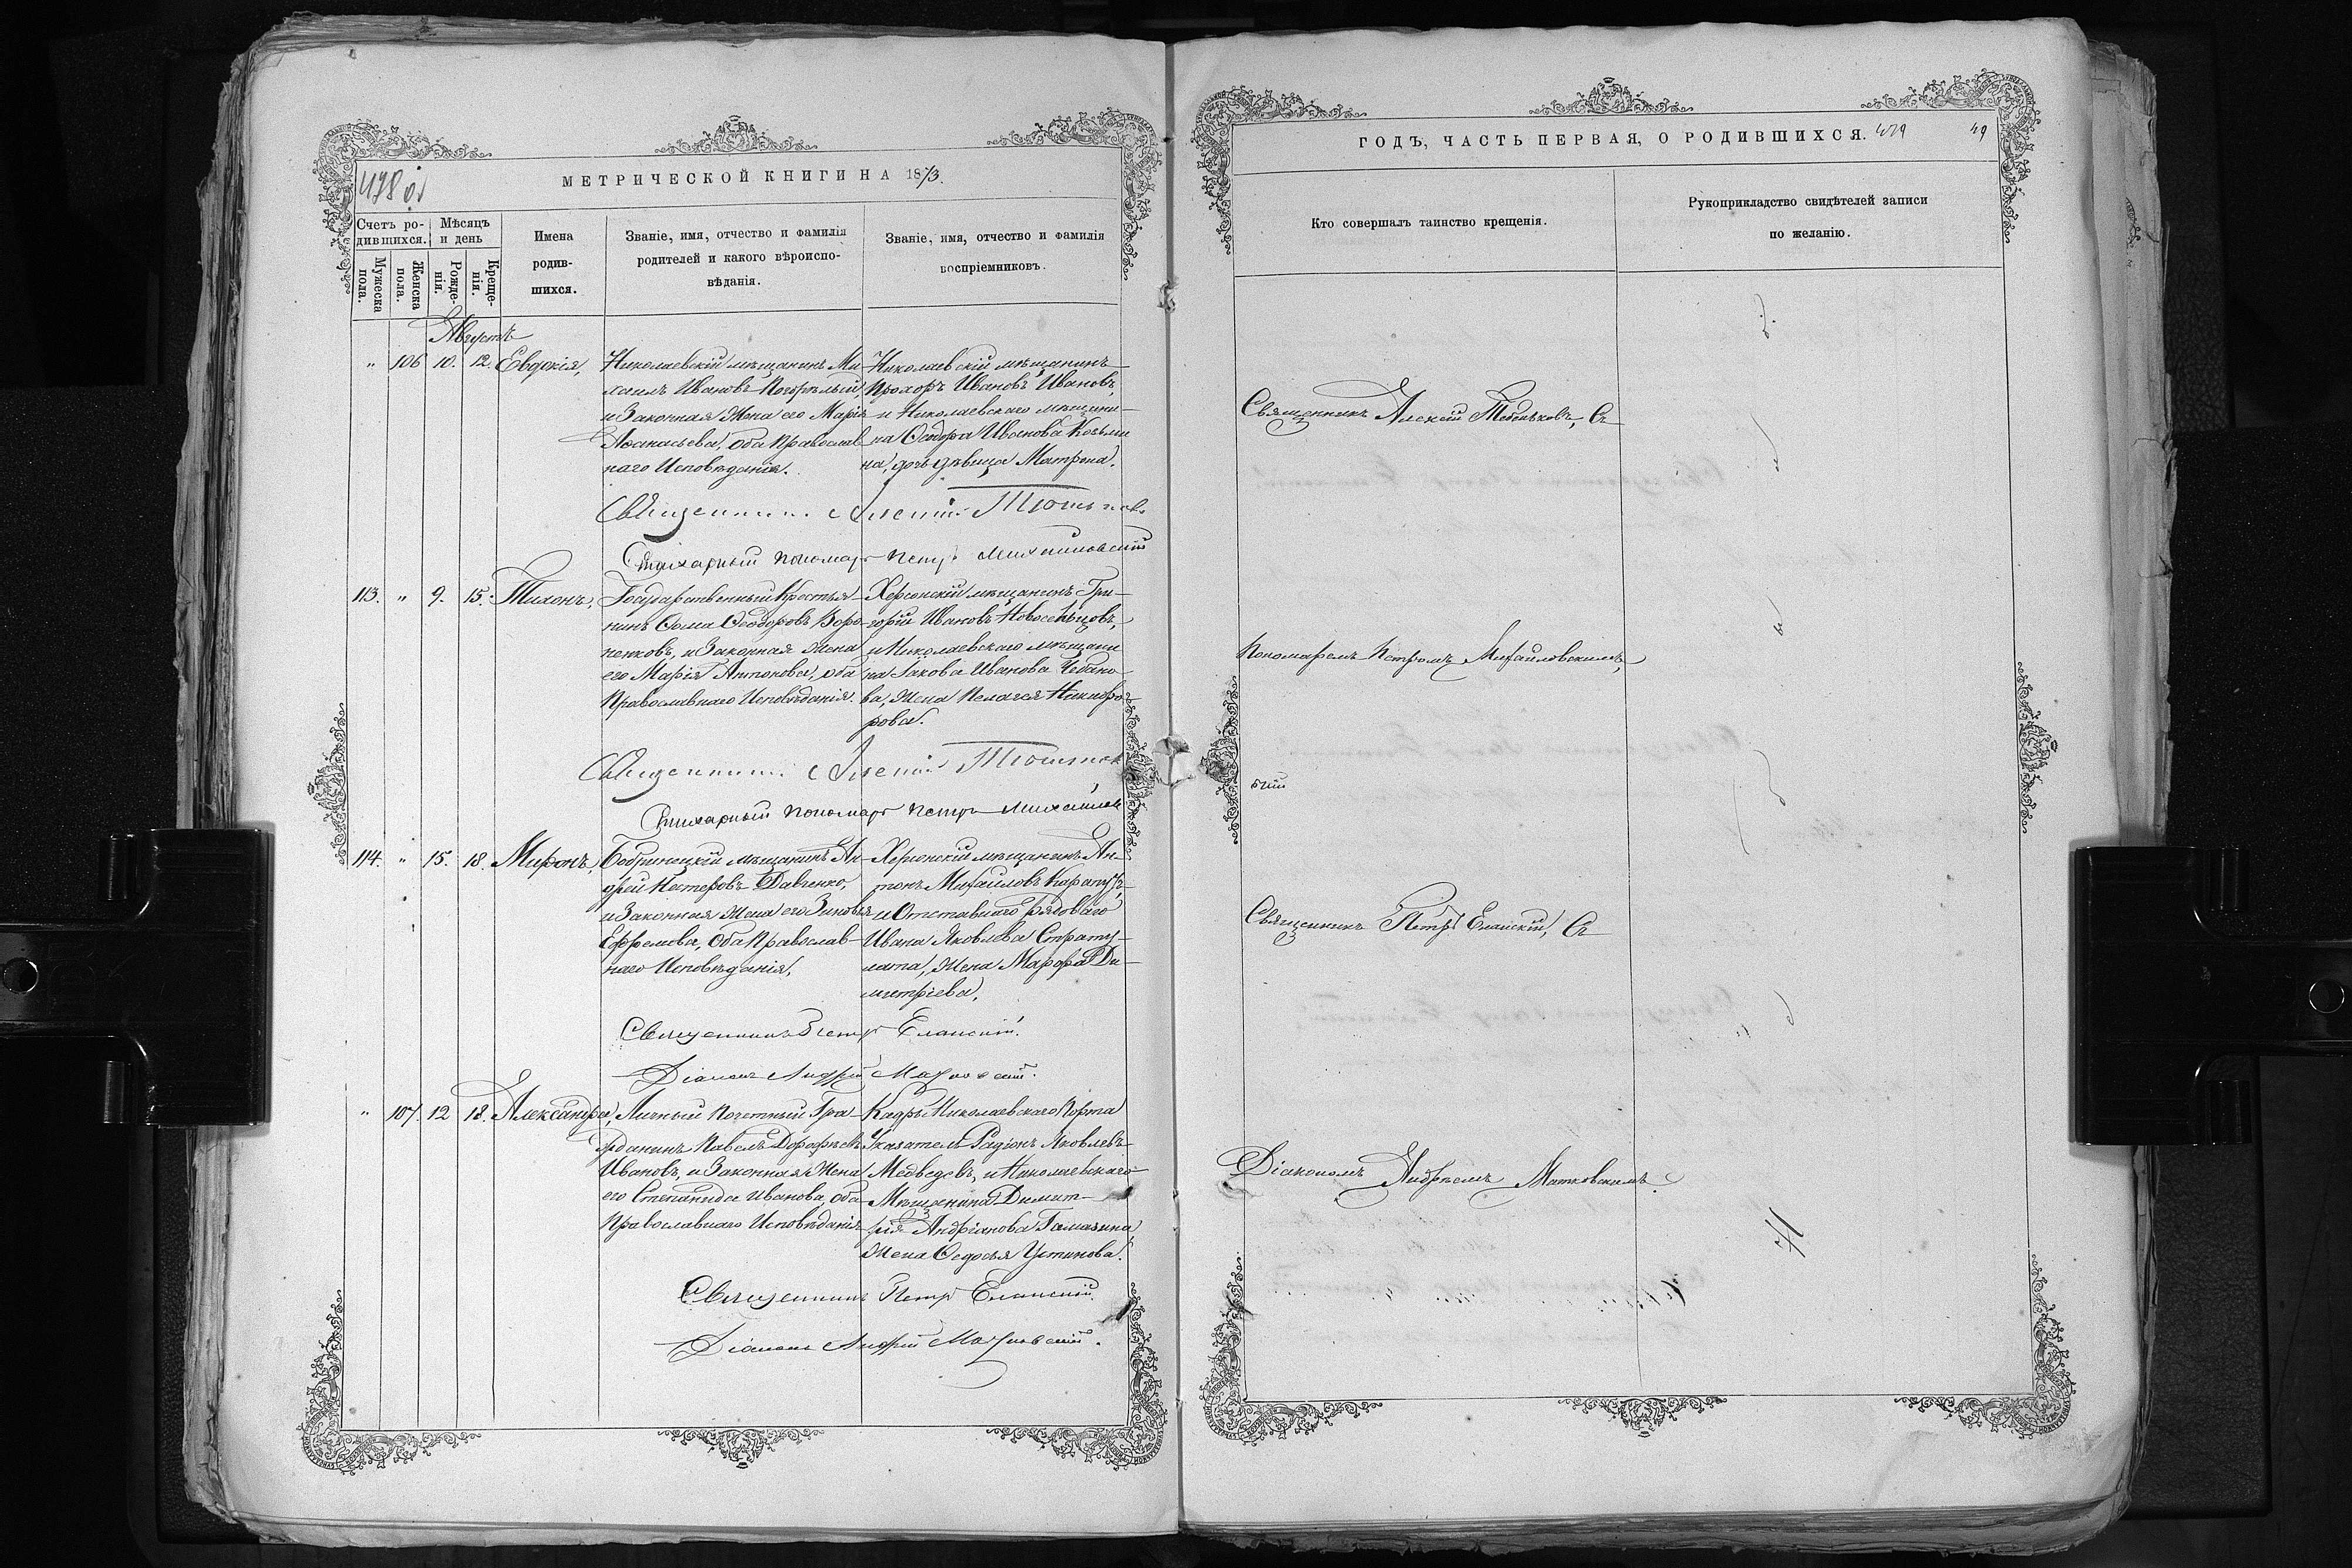 МЕТРИЧЕСКОЙ КНИГИ НА 1873.
Счетъ ро-
дившихся.
Мѣсяцъ
и день
Имена
родив-
шихся.
Званіе, имя, отчество и фамилія
родителей и какого вѣроиспо-
вѣданія.
Званіе, имя, отчество и фамилія
воспріемниковъ.
Мужеска
пола.
Женска
пола.
Рожде-
нія.
Креще-
нія.
Августъ
" 106 10. 12. Евдокія,
Николаевскій мѣщанинъ Ми-
хаилъ Ивановъ Погорѣлый,
и Законная Жена его Марія
Аѳанасьева, оба Православ
наго Исповѣданія.
Николаевскій мѣщанинъ
Прохоръ Ивановъ Ивановъ,
и Николаевскаго мѣщани-
на Ѳеодора Иванова Козьми
на, дочь дѣвица Матрона.
Священникъ Алексій
Стихарный пономарь Петръ Михайловскій
113. " 9. 15. Тихонъ,
Государственный Крестья-
нинъ Ѳома Ѳеодоровъ Воро-
ненковъ, и Законная Жена
его Марія Антонова, оба
Православнаго Исповѣданія.
Херсонскій мѣщанинъ Гри-
горій Ивановъ Новосельцовъ,
и Николаевскаго мѣщани
на Іакова Иванова Чебано-
ва, Жена Пелагея Никифо-
рова.
Священникъ Алексій
Стихарный пономарь Петръ Михайлов
114. " 15. 18. Миронъ,
Бобринецкій мѣщанинъ Ан-
дрей Нестеровъ Давченко,
и Законная Жена его Зиновія
Ефремова, Оба Православ-
наго Исповѣданія,
Херсонскій мѣщанинъ Ан-
тонъ Михайловъ
и Отставнаго рядоваго
Ивана Яковлева Страту-
лата, Жена Марфа Ди-
митріева,
Священникъ Петръ Еланскій.
Діаконъ Андрей Матковскій.
" 107. 12 18. Александра,
Личный Почетный Гра-
жданинъ Павелъ Дорофѣевъ
Ивановъ, и Законная Жена
его Степанида Иванова, оба
Православнаго Исповѣданія
Кадръ Николаевскаго Порта
Указатель Радіонъ Яковлевъ
Медведевъ, и Николаевскаго
Мѣщанина Димит-
рія Андріанова Гамазина,
Жена Ѳедосья Устинова.
Священникъ Петръ Еланскій.
Діаконъ Андрей Матковскій.
ГОДЪ, ЧАСТЬ ПЕРВАЯ, О РОДИВШИХСЯ. 479 49
Кто совершалъ таинство крещенія.
Рукоприкладство свидѣтелей записи
по желанію.
Священникъ Алексій Тебеньковъ, Съ
Пономаремъ Петромъ Михайловскимъ,
скій
Священникъ Петръ Еланскій, Съ
Діакономъ Андреемъ Матковскимъ.